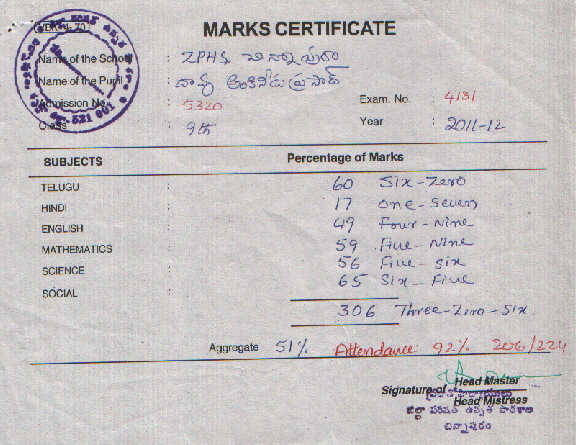 MARKS CERTIFICATE
Name of the School : ZPHS చిన్నాపురం
Name of the Pupil : అంకినీడు ప్రసాద్
Admission No. : 5320 Exam. No. : 4131
Class : 9th Year : 2011-12
SUBJECTS Percentage of Marks
TELUGU : 60 Six-Zero
HINDI : 17 One-Seven
ENGLISH 49 Four-Nine
MATHEMATICS 59 Five-Nine
SCIENCE : 56 Five-Six
SOCIAL : 65 Six-Five
306 Three-Zero-Six
Aggregate 51% Attendance: 92% 206/224
Signature of Head Master
Head Mistress
జిల్లా పరిషత్ ఉన్నత పాఠశాల
చిన్నాపురం